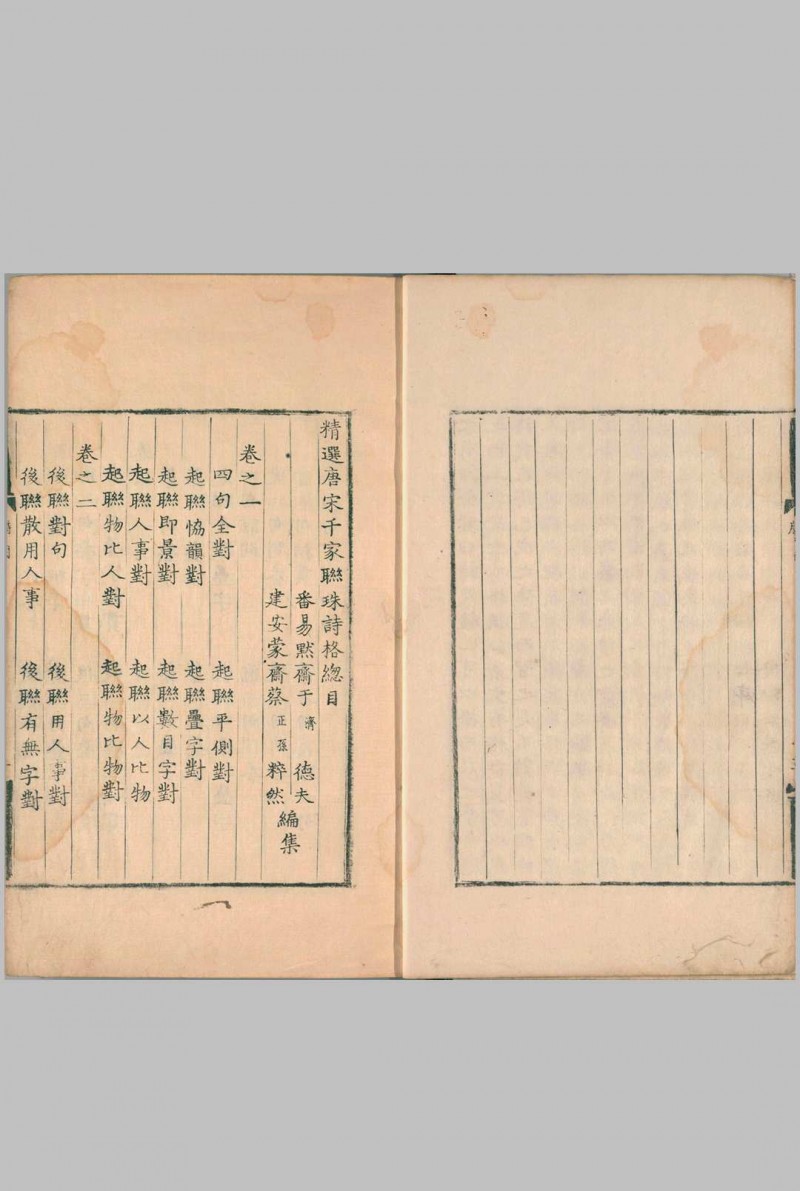 精選唐宋千家聯珠詩格緫目
番昜黙齋于濟德夫
建安蒙齋蔡正孫粹然編集
卷之一
四句全對　起聯平側對
起聯恊韻對　起聯疊字對
起聯即景對　起聯數目字對
起聯人事對　起聯以人比物
起聯物比人對　起聯物比物對
卷之二
後聯對句　後聯用人事對
後聯散用人事　後聯有無字對